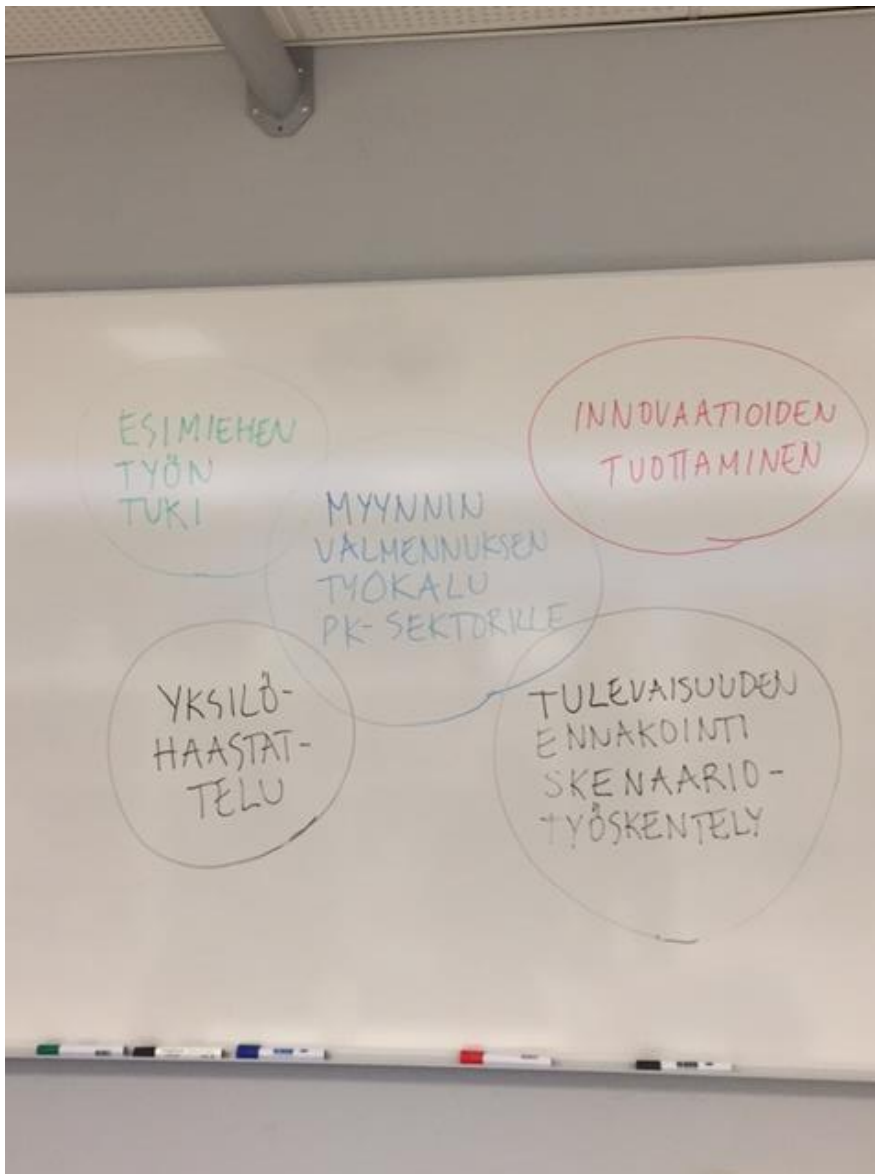 ESIMIEHEN
TYÖN
TUKI
INNOVAATIOIDEN
TUOTTAMINEN
MYYNNIN
VALMENNUKSEN
TYÖKALU
PK-SEKTORILLE
YKSILÖ-
HAASTAT-
TELU
TULEVAISUUDEN
ENNAKOINTI
SKENAARIO-
TYÖSKENTELY